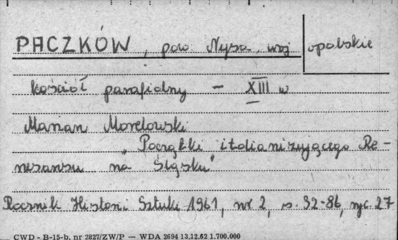 PACZKÓW, pow. Nysa woj. opolskie
kościół parafialny – XIII w
Marian Morelowski
„Początki italianizującego Re-
nesansu na Śląsku"
Rocznik Historii Sztuki 1961, nr 2, s. 32-86, ryc. 27
CWD - B-15-b, nr 2827/ZW/P — WDA 2694 13.12.62 1.700.000